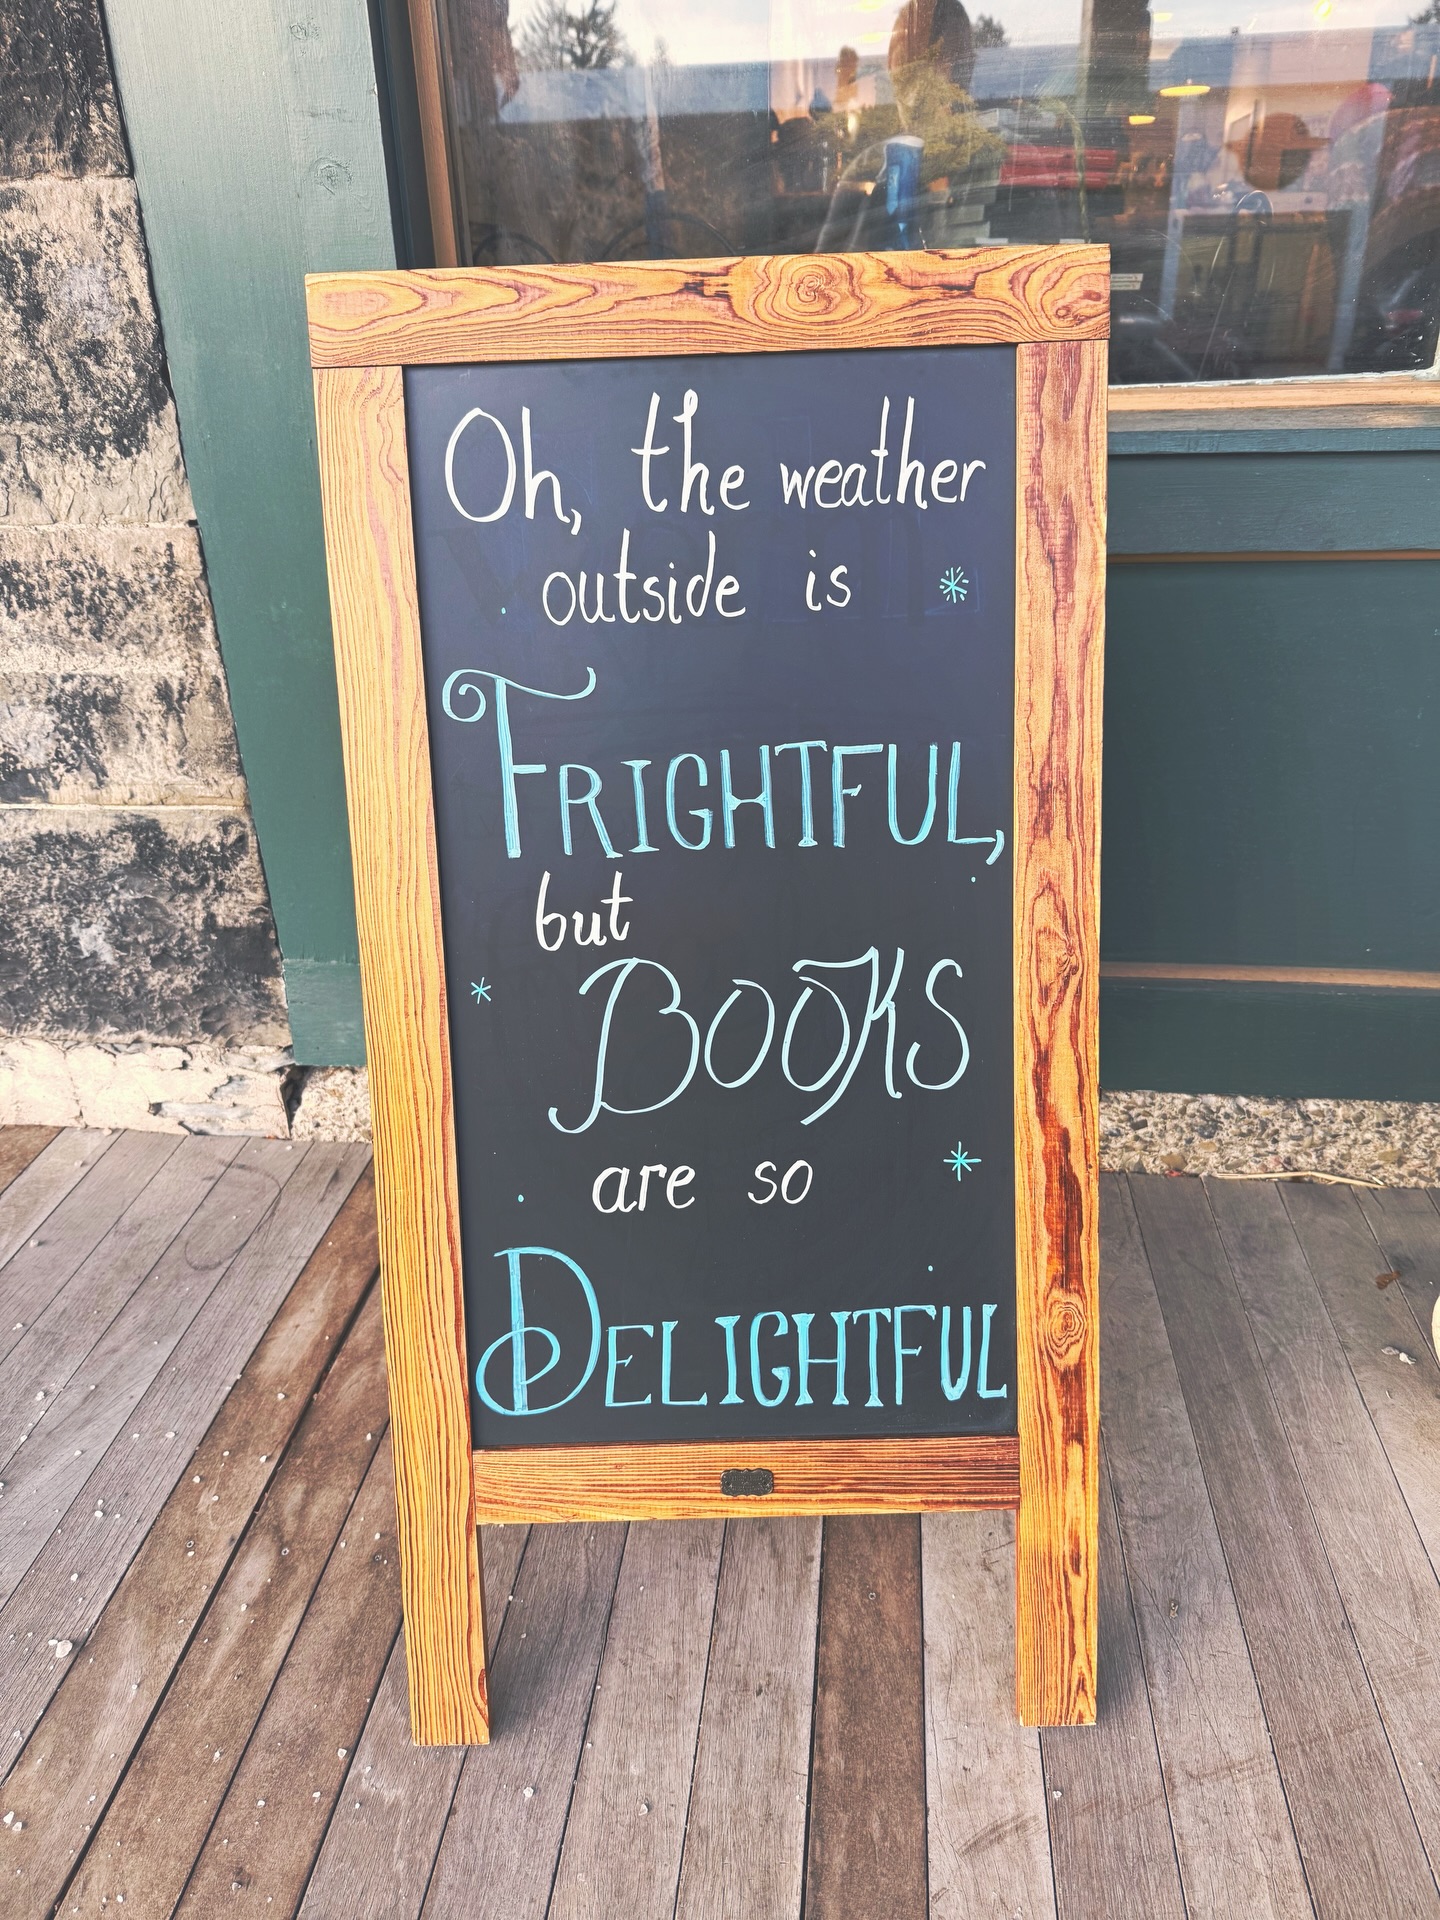 Oh, the weather
outside is
FRIGHTFUL,
but
BOOKS
are so
DELIGHTFUL